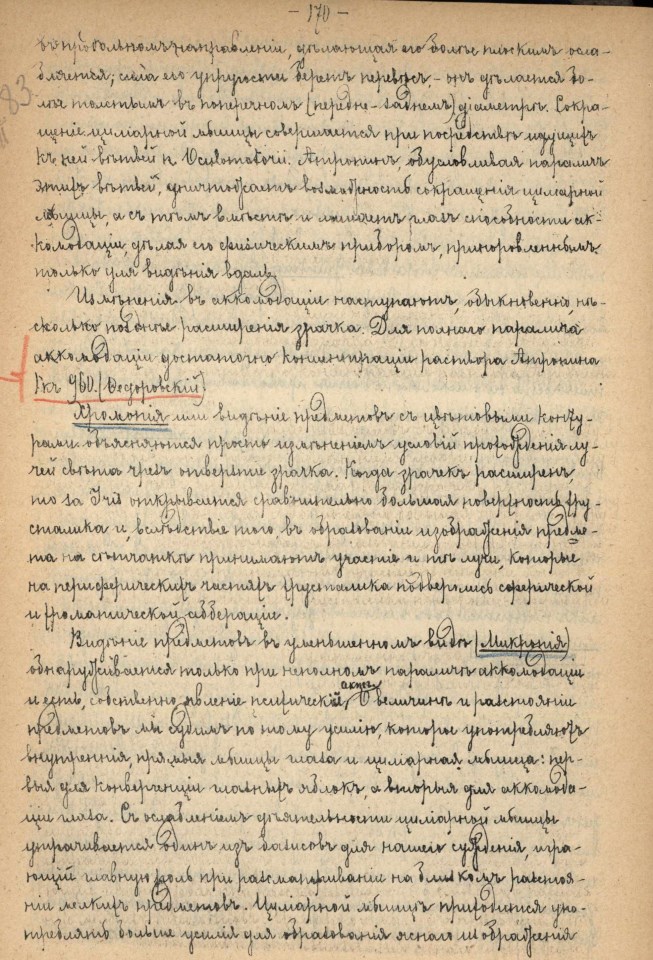 — 170 —
въ продольномъ направленіи, дѣлающая его болѣе плоскимъ осла-
бляется; сила его упругости беретъ перевѣсъ, - онъ дѣлается бо-
лѣе толстымъ въ поперечномъ (передне-заднемъ) діаметрѣ. Сокра-
щеніе циліарной мышцы совершается при посредствѣ идущихъ
къ ней вѣтвей n. Oculomotorii. Атропинъ, обусловливая параличъ
этихъ вѣтвей, уничтожаетъ возможность сокращенія циліарной
мышцы, а съ тѣмъ вмѣстѣ и лишаетъ глазъ способности ак-
комодаціи, дѣлая его физическимъ приборомъ, приноровленнымъ
только для видѣнія вдаль.
Измѣненія въ аккомодаціи наступаютъ, обыкновенно, нѣ-
сколько позднѣе расширенія зрачка. Для полнаго паралича
аккомодаціи достаточно концентраціи раствора Атропина
1 къ 960. (Ѳедоровскій)
Хромопія или видѣніе предметовъ съ цвѣтовыми конту-
рами объясняются просто измѣненіемъ условій прохожденія лу-
чей свѣта чрезъ отверстіе зрачка. Когда зрачекъ расширенъ,
то за Iris открывается сравнительно большая поверхность хру-
сталика и, вслѣдствіе того, въ образованіи изображенія предме-
та на сѣтчаткѣ принимаютъ участіе и тѣ лучи, которые
на периферическихъ частяхъ хрусталика подверглись сферической
и хроматической абберраціи.
Видѣніе предметовъ въ уменьшенномъ видѣ (Микропія)
обнаруживается только при неполномъ параличѣ аккомодаціи
и есть, собственно, явленіе психическій актъ. О величинѣ и разстояніи
предметовъ мы судимъ по тому усилію, которое употребляютъ
внутреннія прямыя мышцы глаза и циліарная мышца: пер-
выя для конвергенціи глазныхъ яблокъ, а вторыя для аккомода-
ціи глаза. Съ ослабленіемъ дѣятельности циліарной мышцы
утрачивается одинъ изъ базисовъ для нашего сужденія, игра-
ющій главную роль при разсматриваніи на близкомъ разстоя-
ніи мелкихъ предметовъ. Циліарной мышцѣ приходится упо-
треблять больше усилія для образованія яснаго изображенія